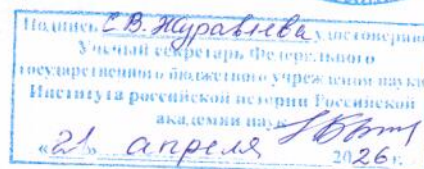 Подпись С.В. Журавлева удостоверяю
Ученый секретарь Федерального
государственного бюджетного учреждения науки
Института российской истории Российской
академии наук
«21» апреля 2026 г.